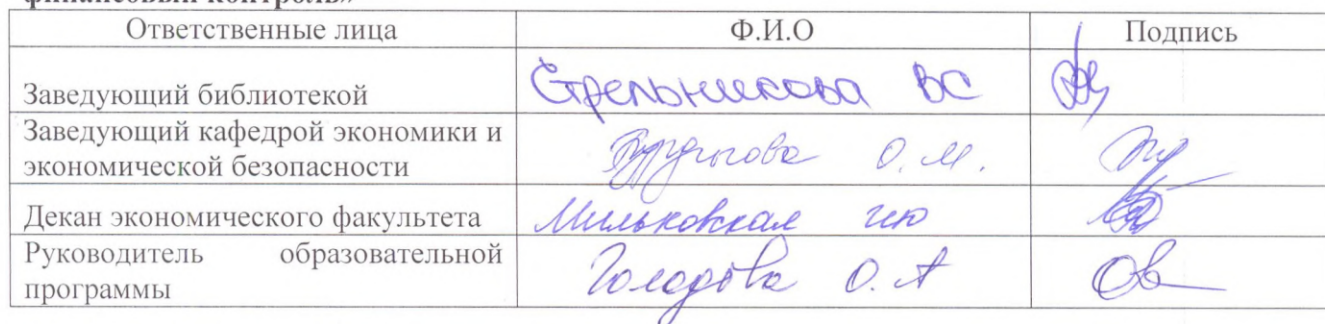 финансовый контроль»
Ответственные лица Ф.И.О Подпись
Заведующий библиотекой Стрельникова ВС
Заведующий кафедрой экономики и
экономической безопасности О.М.
Декан экономического факультета Мильковская
Руководитель образовательной
программы О.А